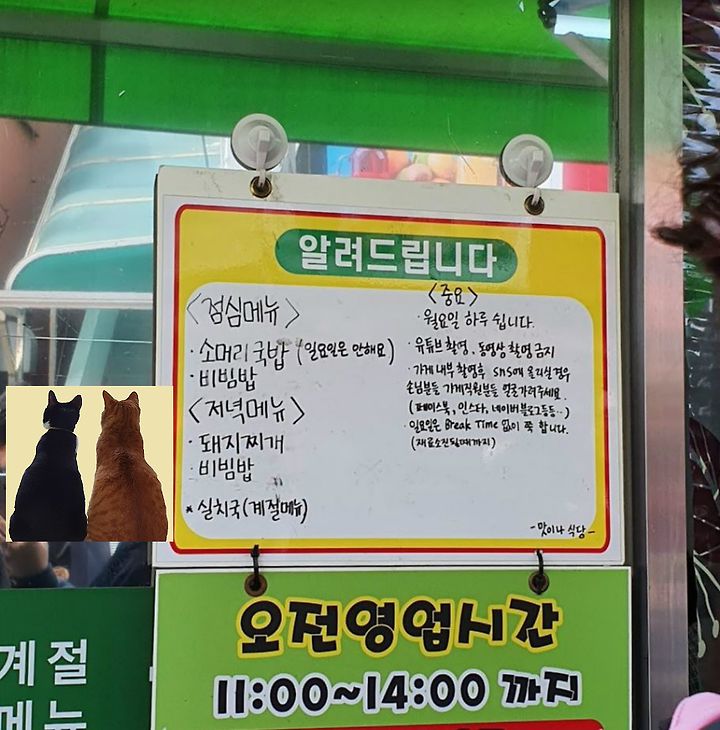 알려드립니다
<점심메뉴>
· 소머리국밥 (일요일은 안해요)
· 비빔밥
<저녁메뉴>
· 돼지찌개
· 비빔밥
* 실치국(계절메뉴)
<중요>
· 월요일 하루 쉽니다.
· 유튜브촬영, 동영상촬영 금지
· 가게 내부 촬영후 sns에 올리실경우
손님분들 가게직원분들 얼굴가려주세요.
(페이스북, 인스타, 네이버블로그등등..)
· 일요일은 Break Time 없이 쭉 합니다.
(재료소진될때까지)
-맛이나 식당-
오전영업시간
11:00~14:00 까지
계절
메뉴